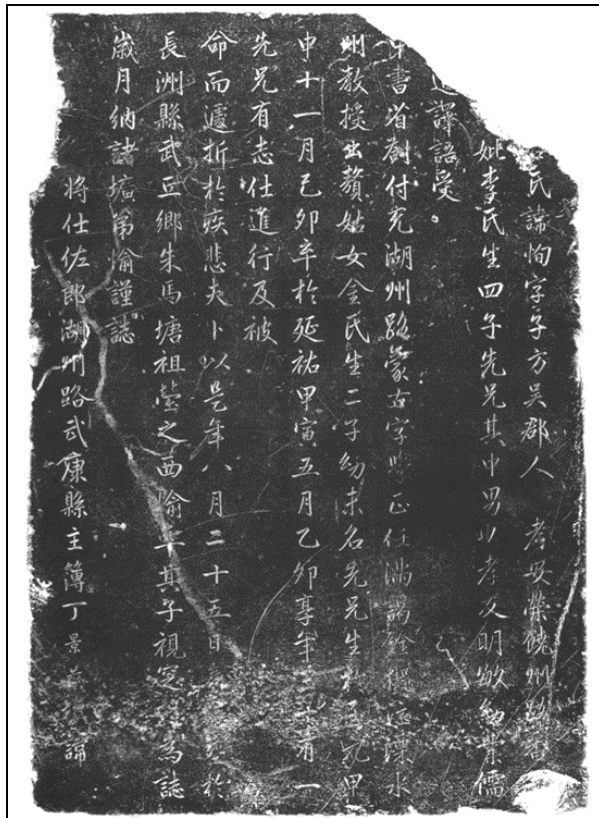 氏諱恂字子方吳郡人　考安榮饒州路
妣李氏生四子先兄其中男以孝友明敏幼業儒
通譯語受
書省劄付充湖州路蒙古字學正任滿
州教授出贅姑女金氏生二子幼未名先兄生於甲
申十一月己卯卒於延祐甲寅五月乙卯享年三十有一
先兄有志仕進行及被
命而遽折於疾悲夫卜以是年八月二十五日於
長洲縣武丘鄉朱馬塘祖塋之西愉其子視窆為誌
歲月納諸壙弟愉謹誌
將仕佐郎湖州路武康縣主簿丁景